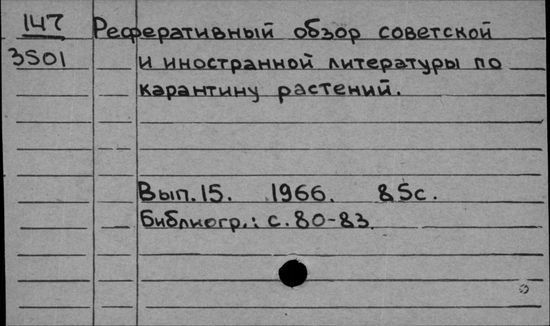 147 Реферативный обзор советской
3501 и иностранной литературы по
карантину растений.
Вып.15. 1966. 85с.
Библиогр.: с.80-83.